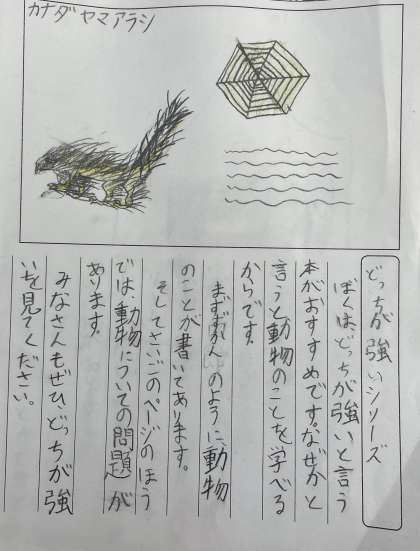 カナダヤマアラシ
どっちが強いシリーズ
ぼくは、どっちが強いと言う
本がおすすめです。なぜかと
言うと動物のことを学べる
からです。
まずずかんのように、動物
のことが書いてあります。
そしてさいごのページのほう
では、動物についての問題が
あります。
みなさんもぜひ、どっちが強
いを見てください。